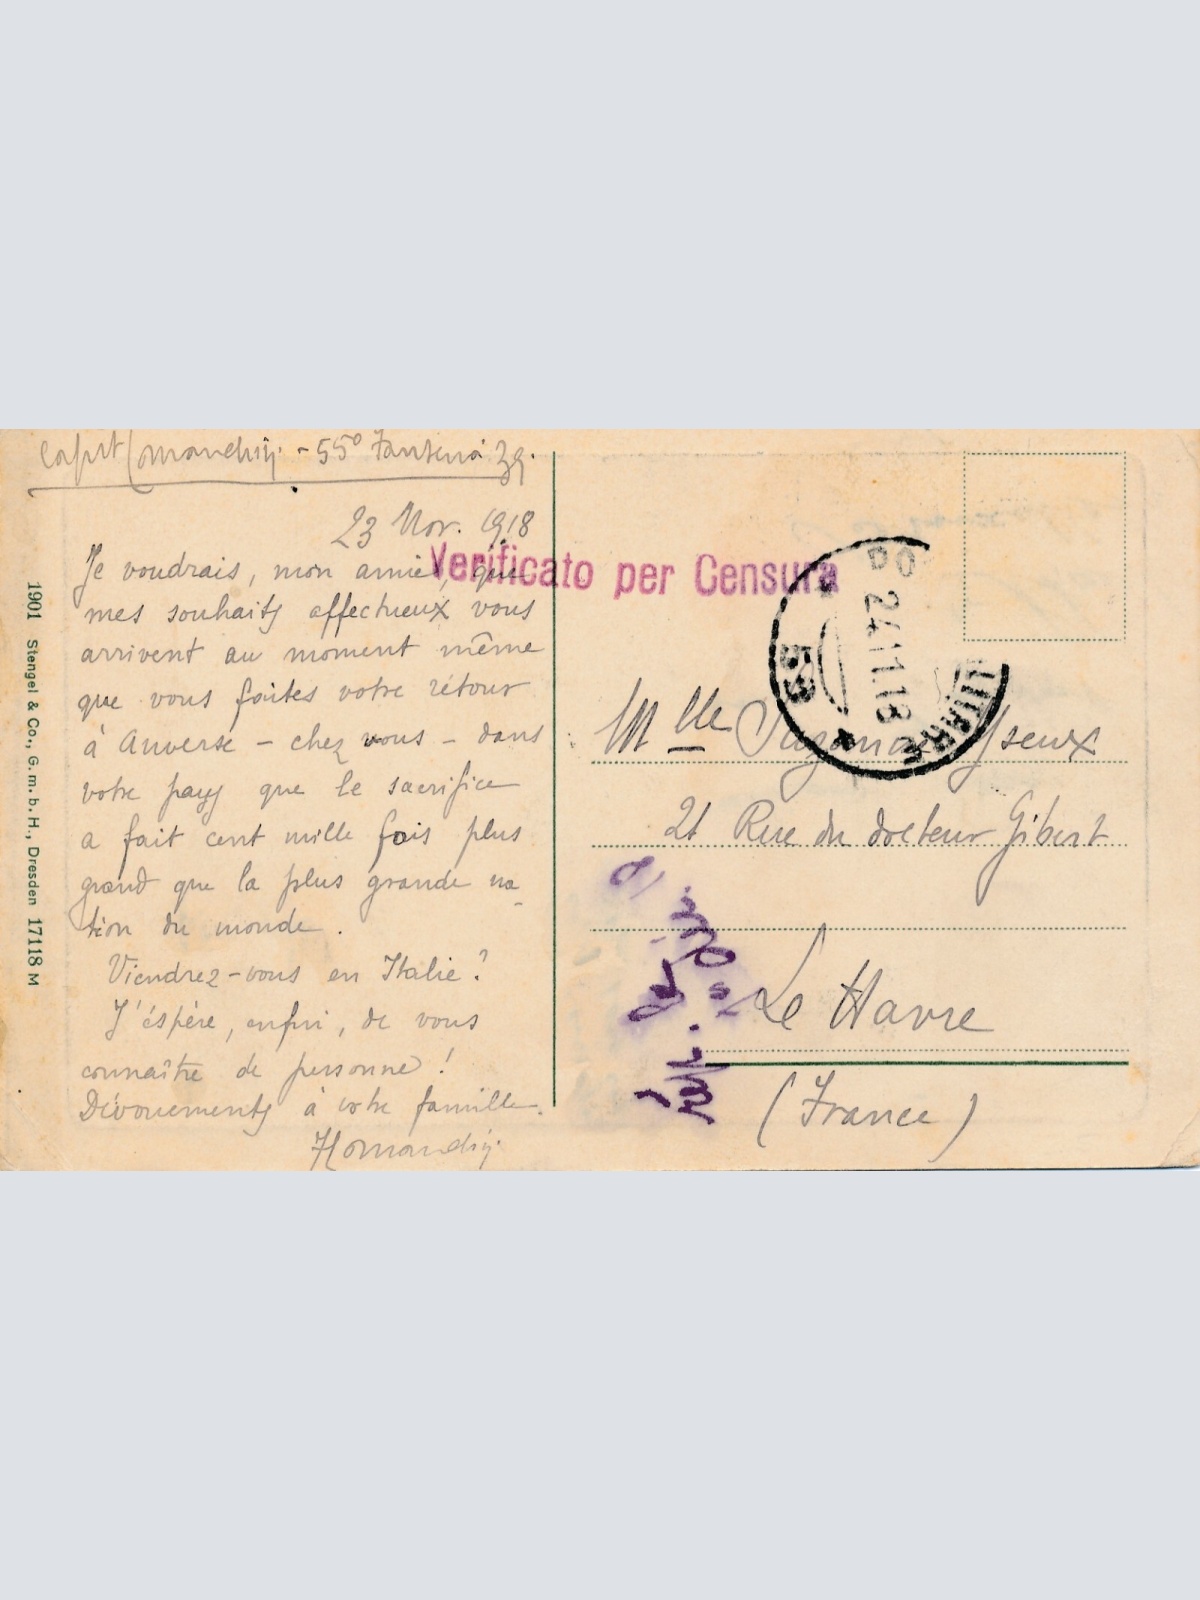 55º Fanteria 39.
23 Nov. 1918
Je voudrais, mon amie, que
mes souhaits affectueux vous
arrivent au moment même
que vous faites votre rétour
à Anverse – chez vous – dans
votre pays que le sacrifice
a fait cent mille fois plus
grand que la plus grande na_
tion du monde.
Viendrez-vous en Italie?
J'éspère, enfin, de vous
connaître de personne!
Dévouements à votre famille.
1901 Stengel & Co., G. m. b. H., Dresden 17118 M
Verificato per Censura
24.11.18
59
Mlle Suzanne Yseux
21 Rue du docteur Gibert
Le Havre
(France)